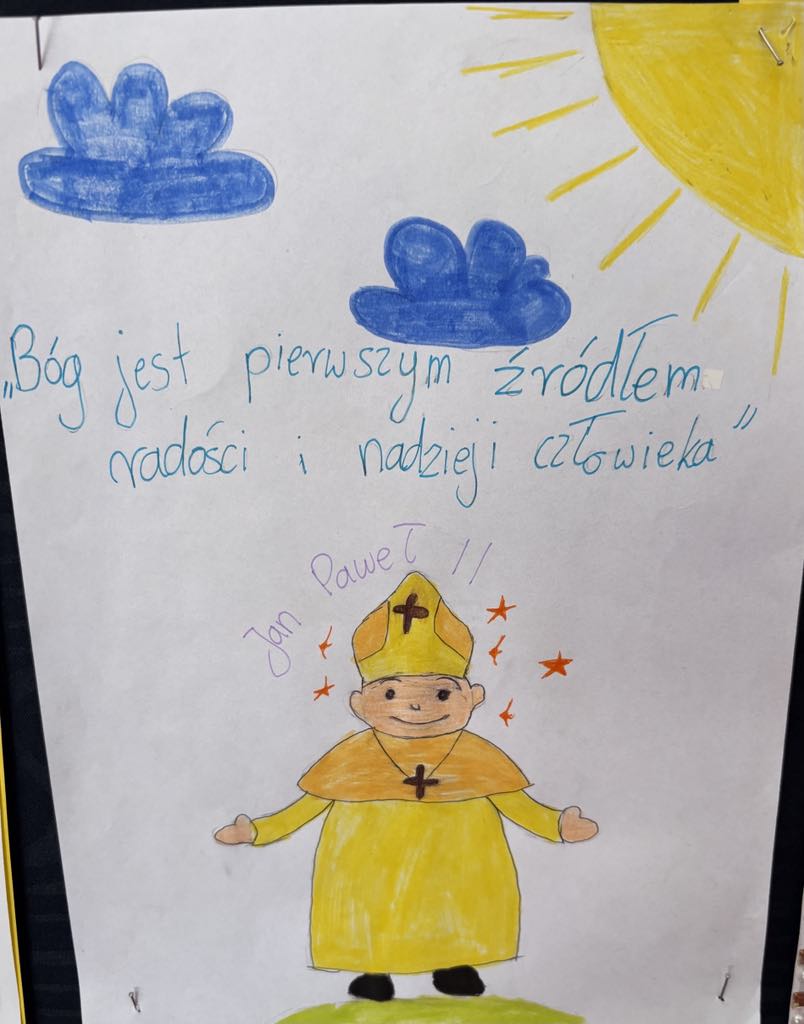 „Bóg jest pierwszym źródłem
radości i nadzieji człowieka”
Jan Paweł II